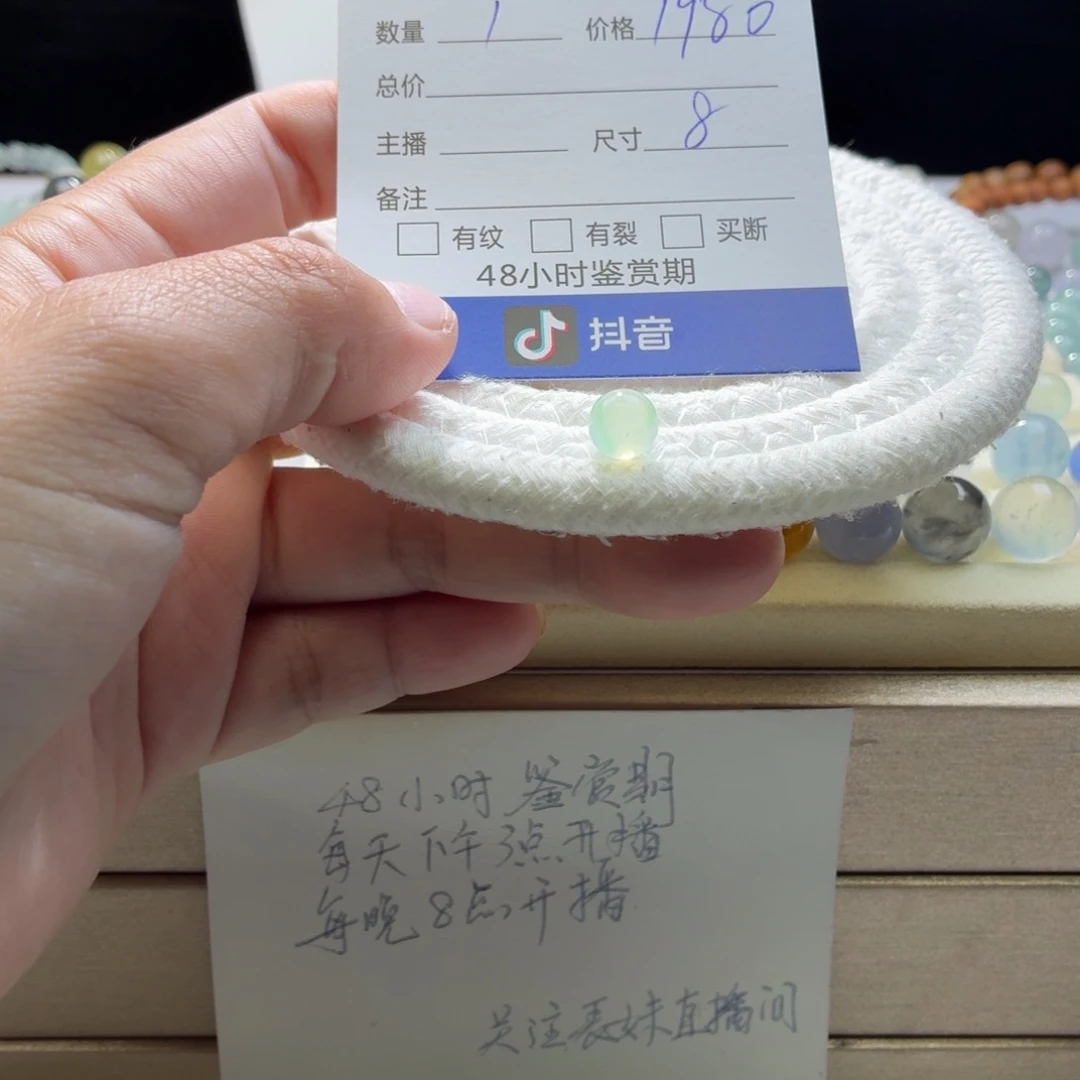 数量 1 价格 1980
总价
主播 尺寸 8
备注
有纹 有裂 买断
48小时鉴赏期
抖音
48小时鉴赏期
每天下午3点开播
每晚8点开播
关注表妹直播间